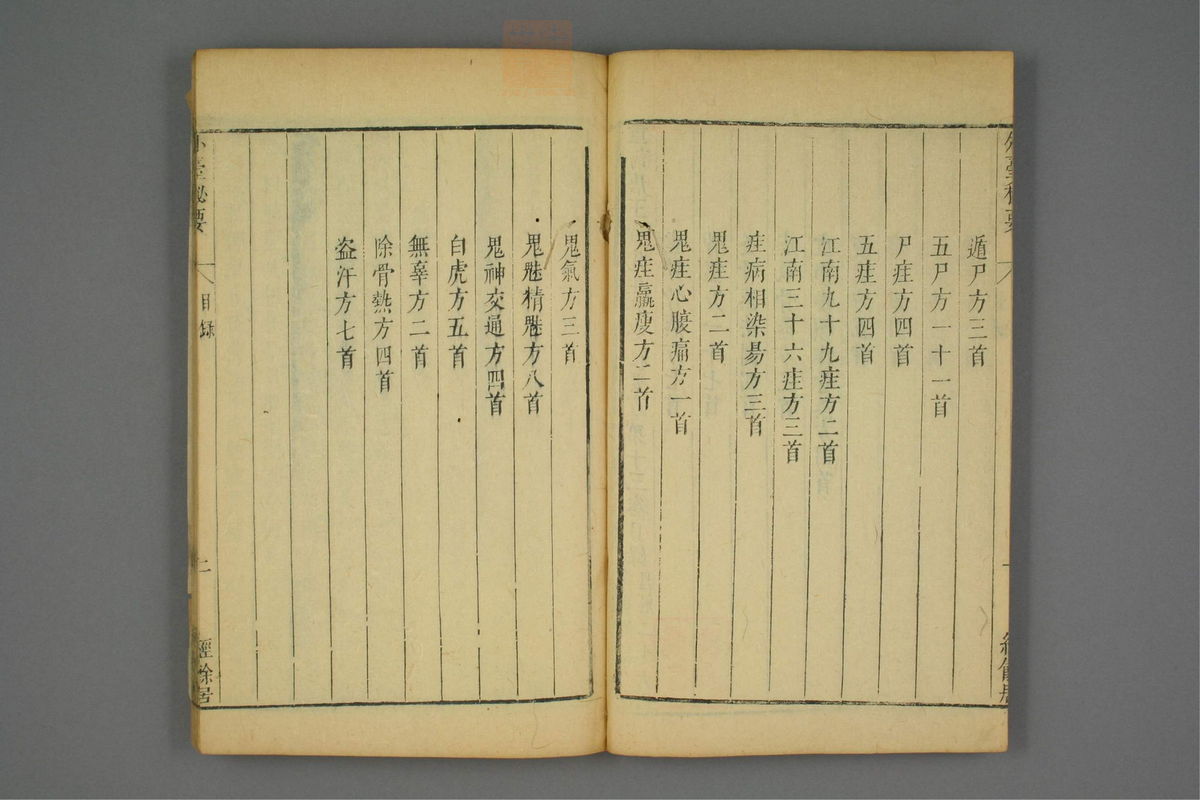 外臺秘要
遁尸方三首
五尸方一十一首
尸疰方四首
五疰方四首
江南九十九疰方二首
江南三十六疰方三首
疰病相染易方三首
鬼疰方二首
鬼疰心腹痛方一首
鬼疰羸瘦方二首
鬼氣方三首
鬼魅精魅方八首
鬼神交通方四首
白虎方五首
無辜方二首
除骨熱方四首
盜汗方七首
外臺秘要
目録
二
經餘居